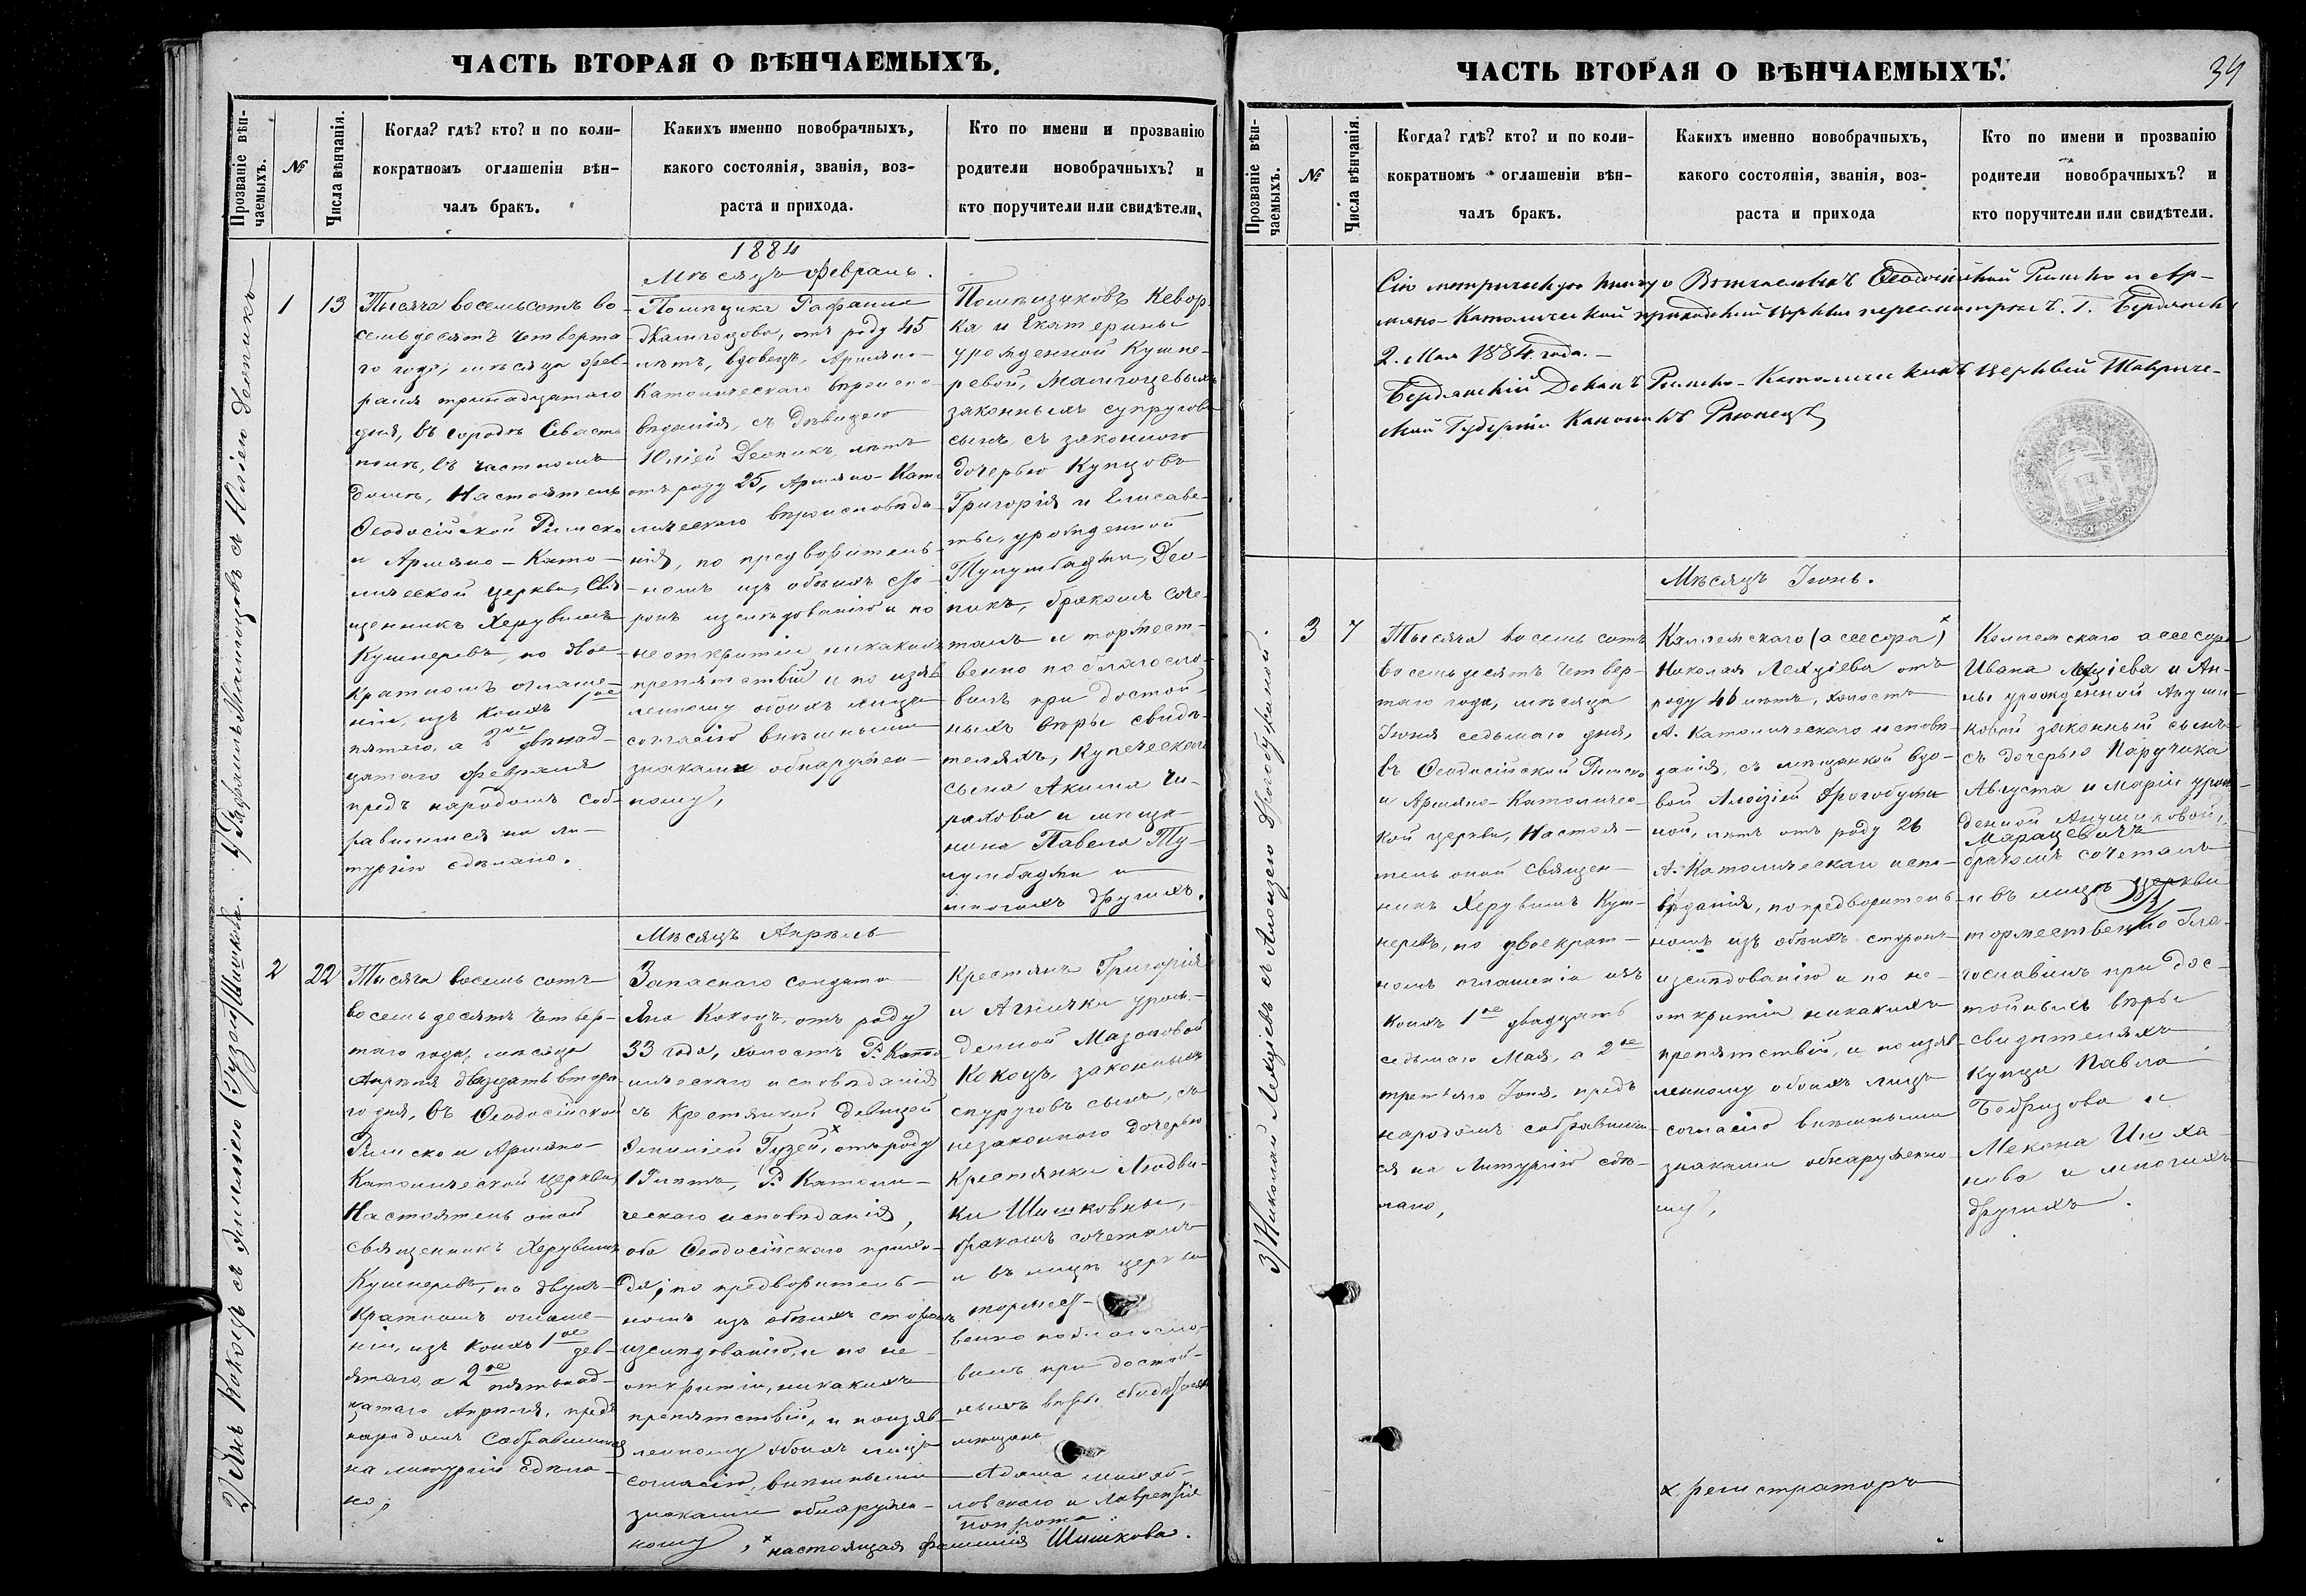 ЧАСТЬ ВТОРАЯ О ВѢНЧАЕМЫХЪ.
Прозваніе вѣн-
чаемыхъ.
№
Числа вѣнчанія.
Когда? гдѣ? кто? и по коли-
кократномъ оглашеніи вѣн-
чалъ бракъ.
Какихъ именно новобрачныхъ,
какого состоянія, званія, воз-
раста и прихода.
Кто по имени и прозванію
родители новобрачныхъ? и
кто поручители или свидѣтели.
1884
Мѣсяцъ Февраль.
1
13
Тысяча восемьсотъ во-
семьдесятъ четверта
го года, мѣсяца Фев-
раля тринадцатаго
дня, въ городѣ Севасто
полѣ, въ частномъ
домѣ, Настоятель
Ѳеодосійской Римско
и Армяно-Като-
лической церкви, Свя
щенникъ Херувимъ
Кушнеревъ, по дву-
кратномъ оглаше-
ніи, изъ коихъ 1ое
пятаго, а 2ое двѣнад-
цатаго февраля
предъ народомъ соб-
равшимся на ли-
тургію сдѣлано.
Помѣщика Рафаила
отъ роду 45
лѣтъ, вдовецъ, Армяно-
Католическаго вѣроиспо-
вѣданія, съ дѣвицею
Юліей Деопикъ, лѣтъ
отъ роду 25, Армяно-Като
лическаго вѣроисповѣда-
нія, по предворитель-
номъ изъ обѣихъ сто-
ронъ изслѣдованію и по
неоткрытіи никакихъ
препятствій и по изъяв
ленному обоихъ лицъ
согласію внѣшными
знаками обнаружен-
ному,
Помѣщиковъ Кевор
ка и Екатерины
урожденной Кушне-
ревой,
законныхъ супруговъ
сынъ, съ законною
дочерью Купцовъ
Григорія и Елисаве-
ты, урожденной
Тупумбаджи, Део-
пикъ, бракомъ соче-
талъ и торжест-
венно поблагосло-
вилъ при достой-
ныхъ вѣры свидѣ-
теляхъ, Купеческаго
сына Акима Чи-
рахова и мѣща-
нина Павела Ту-
пумбаджи и
многихъ другихъ.
Мѣсяцъ Апрѣль
2
22
Тысяча восемь сотъ
восемьдесятъ четвер-
таго года, мѣсяца
Апрѣля двадцать второ
го дня, въ Ѳеодосійской
Римско и Армяно-
Католической церкви,
Настоятель оной
священникъ Херувимъ
Кушнеревъ, по двух-
кратномъ оглаше-
ніи, изъ коихъ 1ое дев-
ятаго, а 2ое пятьнад-
цатаго Апрѣля, предъ
народомъ собравшимся
на литургію сдѣла-
но,
Запаснаго солдата
Яна Кокоцъ, отъ роду
33 года, холостъ Р. Като
лическаго исповѣданія
съ крестьянкой девицей
Эмиліей Гузей, отъ роду
лѣтъ, Р. Католи-
ческаго исповѣданія,
оба Ѳеодосійскаго прихо-
да, по предворитель-
номъ изъ обѣихъ сторонъ
изслѣдованію, и по не-
открытіи, никакихъ
препятствій, и по изъяв
ленному обоихъ лицъ
согласію, внѣшными
знаками обнаружен-
ному,
× настоящая фамилія Шишкова.
Крестьянъ Григорія
и Агнѣшки урож-
денной Мазоновой
Кокоцъ, законныхъ
супруговъ сынъ, съ
незаконною дочерью
Крестьянки Людви-
ки Шишковны,
бракомъ сочеталъ
и въ лицѣ церкви
торжест-
венно поблагосло-
вилъ при достой-
ныхъ вѣры свидѣтеляхъ
мѣщанъ
Адама
ловскаго и Лаврентія
ЧАСТЬ ВТОРАЯ О ВѢНЧАЕМЫХЪ.
34
Прозваніе вѣн-
чаемыхъ.
№
Числа вѣнчанія.
Когда? гдѣ? кто? и по коли-
кократномъ оглашеніи вѣн-
чалъ бракъ.
Какихъ именно новобрачныхъ,
какого состоянія, званія, воз-
раста и прихода
Кто по имени и прозванію
родители новобрачныхъ? и
кто поручители или свидѣтели.
Сію метрическую книгу о Вѣнчаемыхъ Ѳеодосійской Римско и Ар-
мяно-Католической приходской церкви пересматривалъ. Г. Бердянскъ
2. Мая 1884 года.
Бердянскій Деканъ Римско-Католическихъ церквей Тавриче-
ской Губерніи Каноникъ
Мѣсяцъ Іюнь.
3
7
Тысяча восемь сотъ
восемьдесятъ четвер-
таго года, мѣсяца
Іюня седьмаго дня,
въ Ѳеодосійской Римско
и Армяно-Католичес-
кой церкви, Настоя-
тель оной священ-
никъ Херувимъ Куш-
неревъ, по двоекрат-
номъ оглашеніи изъ
коихъ 1ое двадцать
седьмаго Мая, а 2ое
третьяго Іюня, предъ
народомъ собравшим-
ся на Литургію сдѣ-
лано,
Коллежскаго (ассесора)×
Николая Лехціева отъ
роду 46 лѣтъ, холостъ
А. Католическаго исповѣ-
данія, съ мѣщанкой вдо-
вой Алоизіей Дрогобужи
ной, лѣтъ отъ роду 26
А. Католическаго испо-
вѣданія, по предворитель-
номъ изъ обѣихъ сторонъ
изслѣдованію и по не-
открытіи никакихъ
препятствій, и по изъяв
ленному обоихъ лицъ
согласію внѣшными
знаками обнаруженно
му,
× регистраторъ
Коллежскаго ассесора
Ивана Лехціева и Ан-
ны урожденной Акуши-
ковой законный сынъ
съ дочерью Поручика
Августа и Маріи урож-
денной Акушиковой,
Марацевичъ
бракомъ сочеталъ
и въ лицѣ церкви
торжественно бла-
гословилъ при дос-
тойныхъ вѣры
свидѣтеляхъ
Купца Павла
и
Мекона Ишха
нова и многихъ
другихъ.